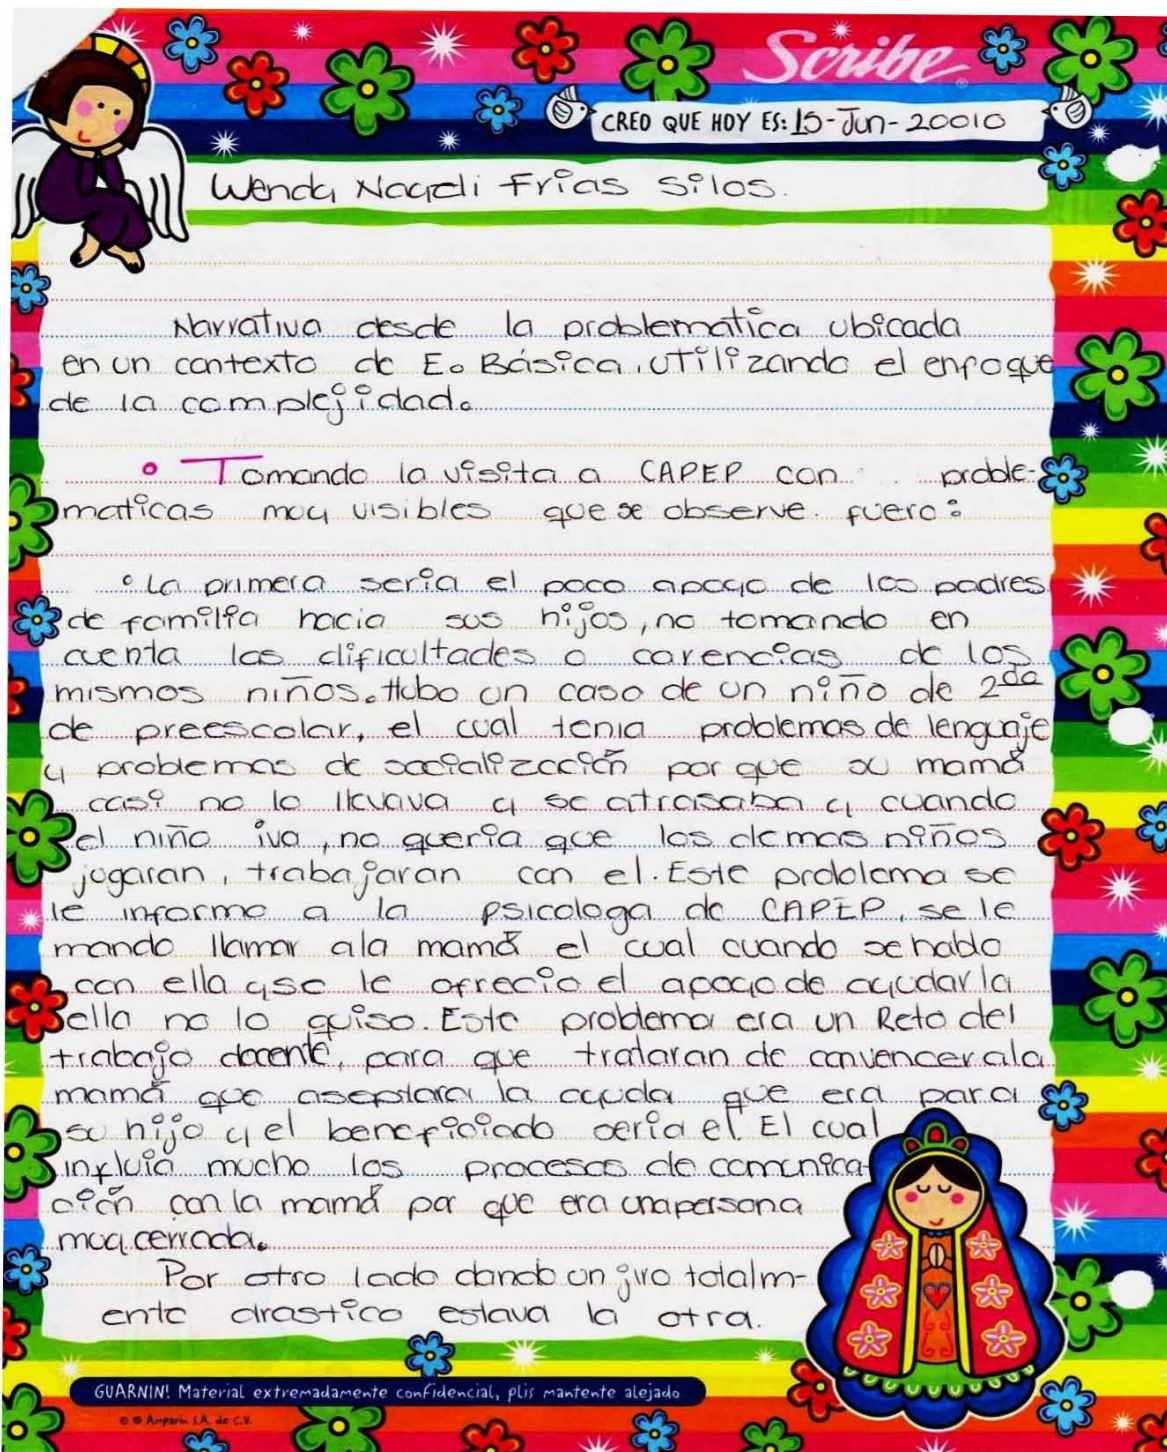 Scribe
CREO QUE HOY ES: 15-Jun-20010
Wendy Nayeli Frias Silos.
Narrativa desde la problematica ubicada
en un contexto de E. Básica, utilizando el enfoque
de la complejidad.
• Tomando la visita a CAPEP con proble-
maticas muy visibles que se observe. fuero:
• La primera seria el poco apoyo de los padres
de familia hacia sus hijos, no tomando en
cuenta las dificultades o carencias de los
mismos niños. Hubo un caso de un niño de 2do
de preescolar, el cual tenia problemas de lenguaje
y problemas de socialización por que su mamá
casi no lo llevava y se atrasaba y cuando
el niño iva, no queria que los demas niños
jugaran, trabajaran con el. Este problema se
le informo a la psicologa de CAPEP, se le
mando llamar ala mamá el cual cuando se hablo
con ella y se le ofrecio el apoyo de ayudarla
ella no lo quiso. Este problema era un Reto del
trabajo docente, para que trataran de convencer ala
mamá que aseptara la ayuda que era para
su hijo y el beneficiado seria el. El cual
influia mucho los procesos de comunica-
ción con la mamá por que era una persona
muy cerrada.
Por otro lado dando un jiro totalm-
ente drastico estava la otra.
GUARNIN! Material extremadamente confidencial, plis mantente alejado
© ® Amparin S.A. de C.V.